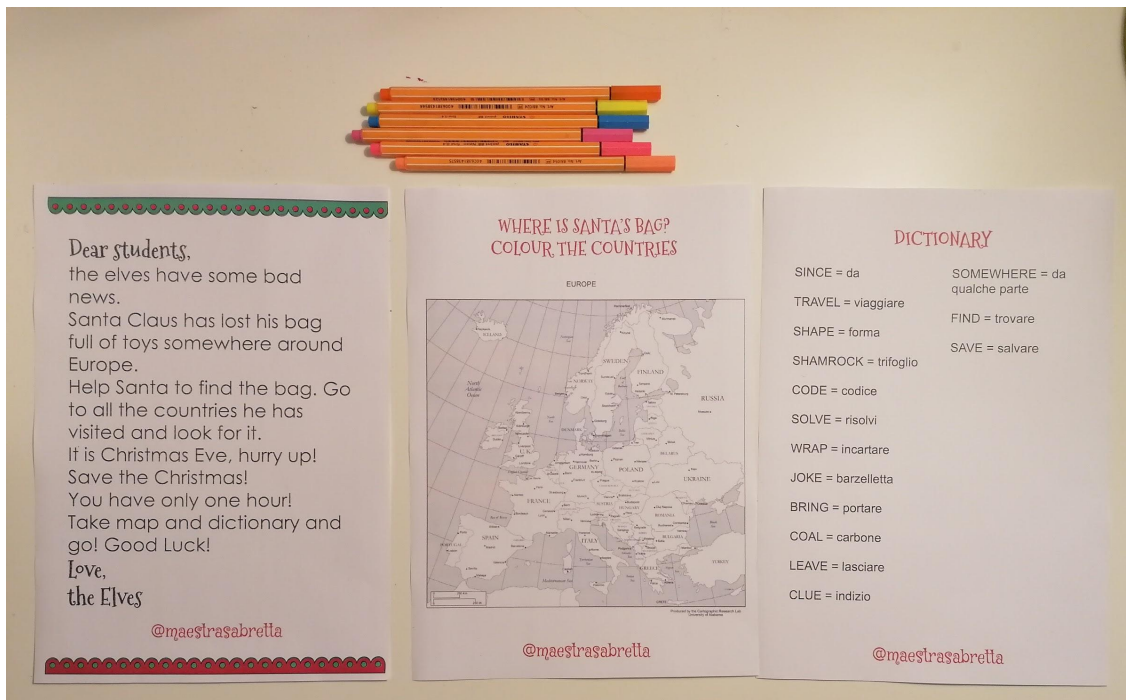 Dear students,
the elves have some bad
news.
Santa Claus has lost his bag
full of toys somewhere around
Europe.
Help Santa to find the bag. Go
to all the countries he has
visited and look for it.
It is Christmas Eve, hurry up!
Save the Christmas!
You have only one hour!
Take map and dictionary and
go! Good Luck!
Love,
the Elves
@maestrasabretta
WHERE IS SANTA'S BAG?
COLOUR THE COUNTRIES
EUROPE
ICELAND
SWEDEN
FINLAND
NORWAY
North
Atlantic
Ocean
RUSSIA
DENMARK
U.K.
BELARUS
GERMANY
POLAND
UKRAINE
FRANCE
ROMANIA
ITALY
BULGARIA
PORTUGAL
SPAIN
GREECE
TURKEY
Mediterranean Sea
Produced by the Cartographic Research Lab
University of Alabama
@maestrasabretta
DICTIONARY
SINCE = da
TRAVEL = viaggiare
SHAPE = forma
SHAMROCK = trifoglio
CODE = codice
SOLVE = risolvi
WRAP = incartare
JOKE = barzelletta
BRING = portare
COAL = carbone
LEAVE = lasciare
CLUE = indizio
SOMEWHERE = da
qualche parte
FIND = trovare
SAVE = salvare
@maestrasabretta